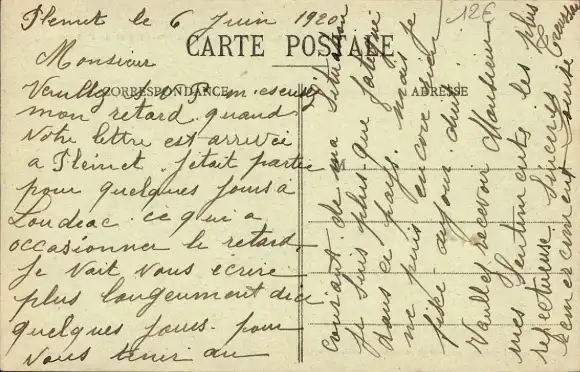 Plemet le 6 Juin 1920
12€
CARTE POSTALE
CORRESPONDANCE
ADRESSE
Monsieur
Veuillez S.V.P. m'escusez
mon retard. quand
votre lettre est arrivée
a Plémet. J'etait partie
pour quelques jours à
Loudéac. ce qui a
occasionner le retard.
Je vait vous écrire
plus longeument dici
quelques jours. pour
vous tenir au
courant de ma situation
Je suis plus que fatigué
dans ce pays. mais je
ne puis encore rien
fixé aujourd'hui
Veuillez recevoir Monsieur
mes sentiments les plus
respectueuse Sincères
remerciement Louise